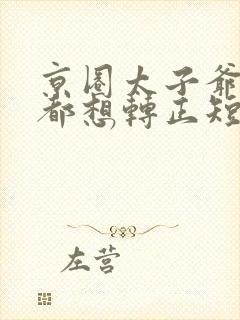 京圈太子爺
都想轉正短
左营